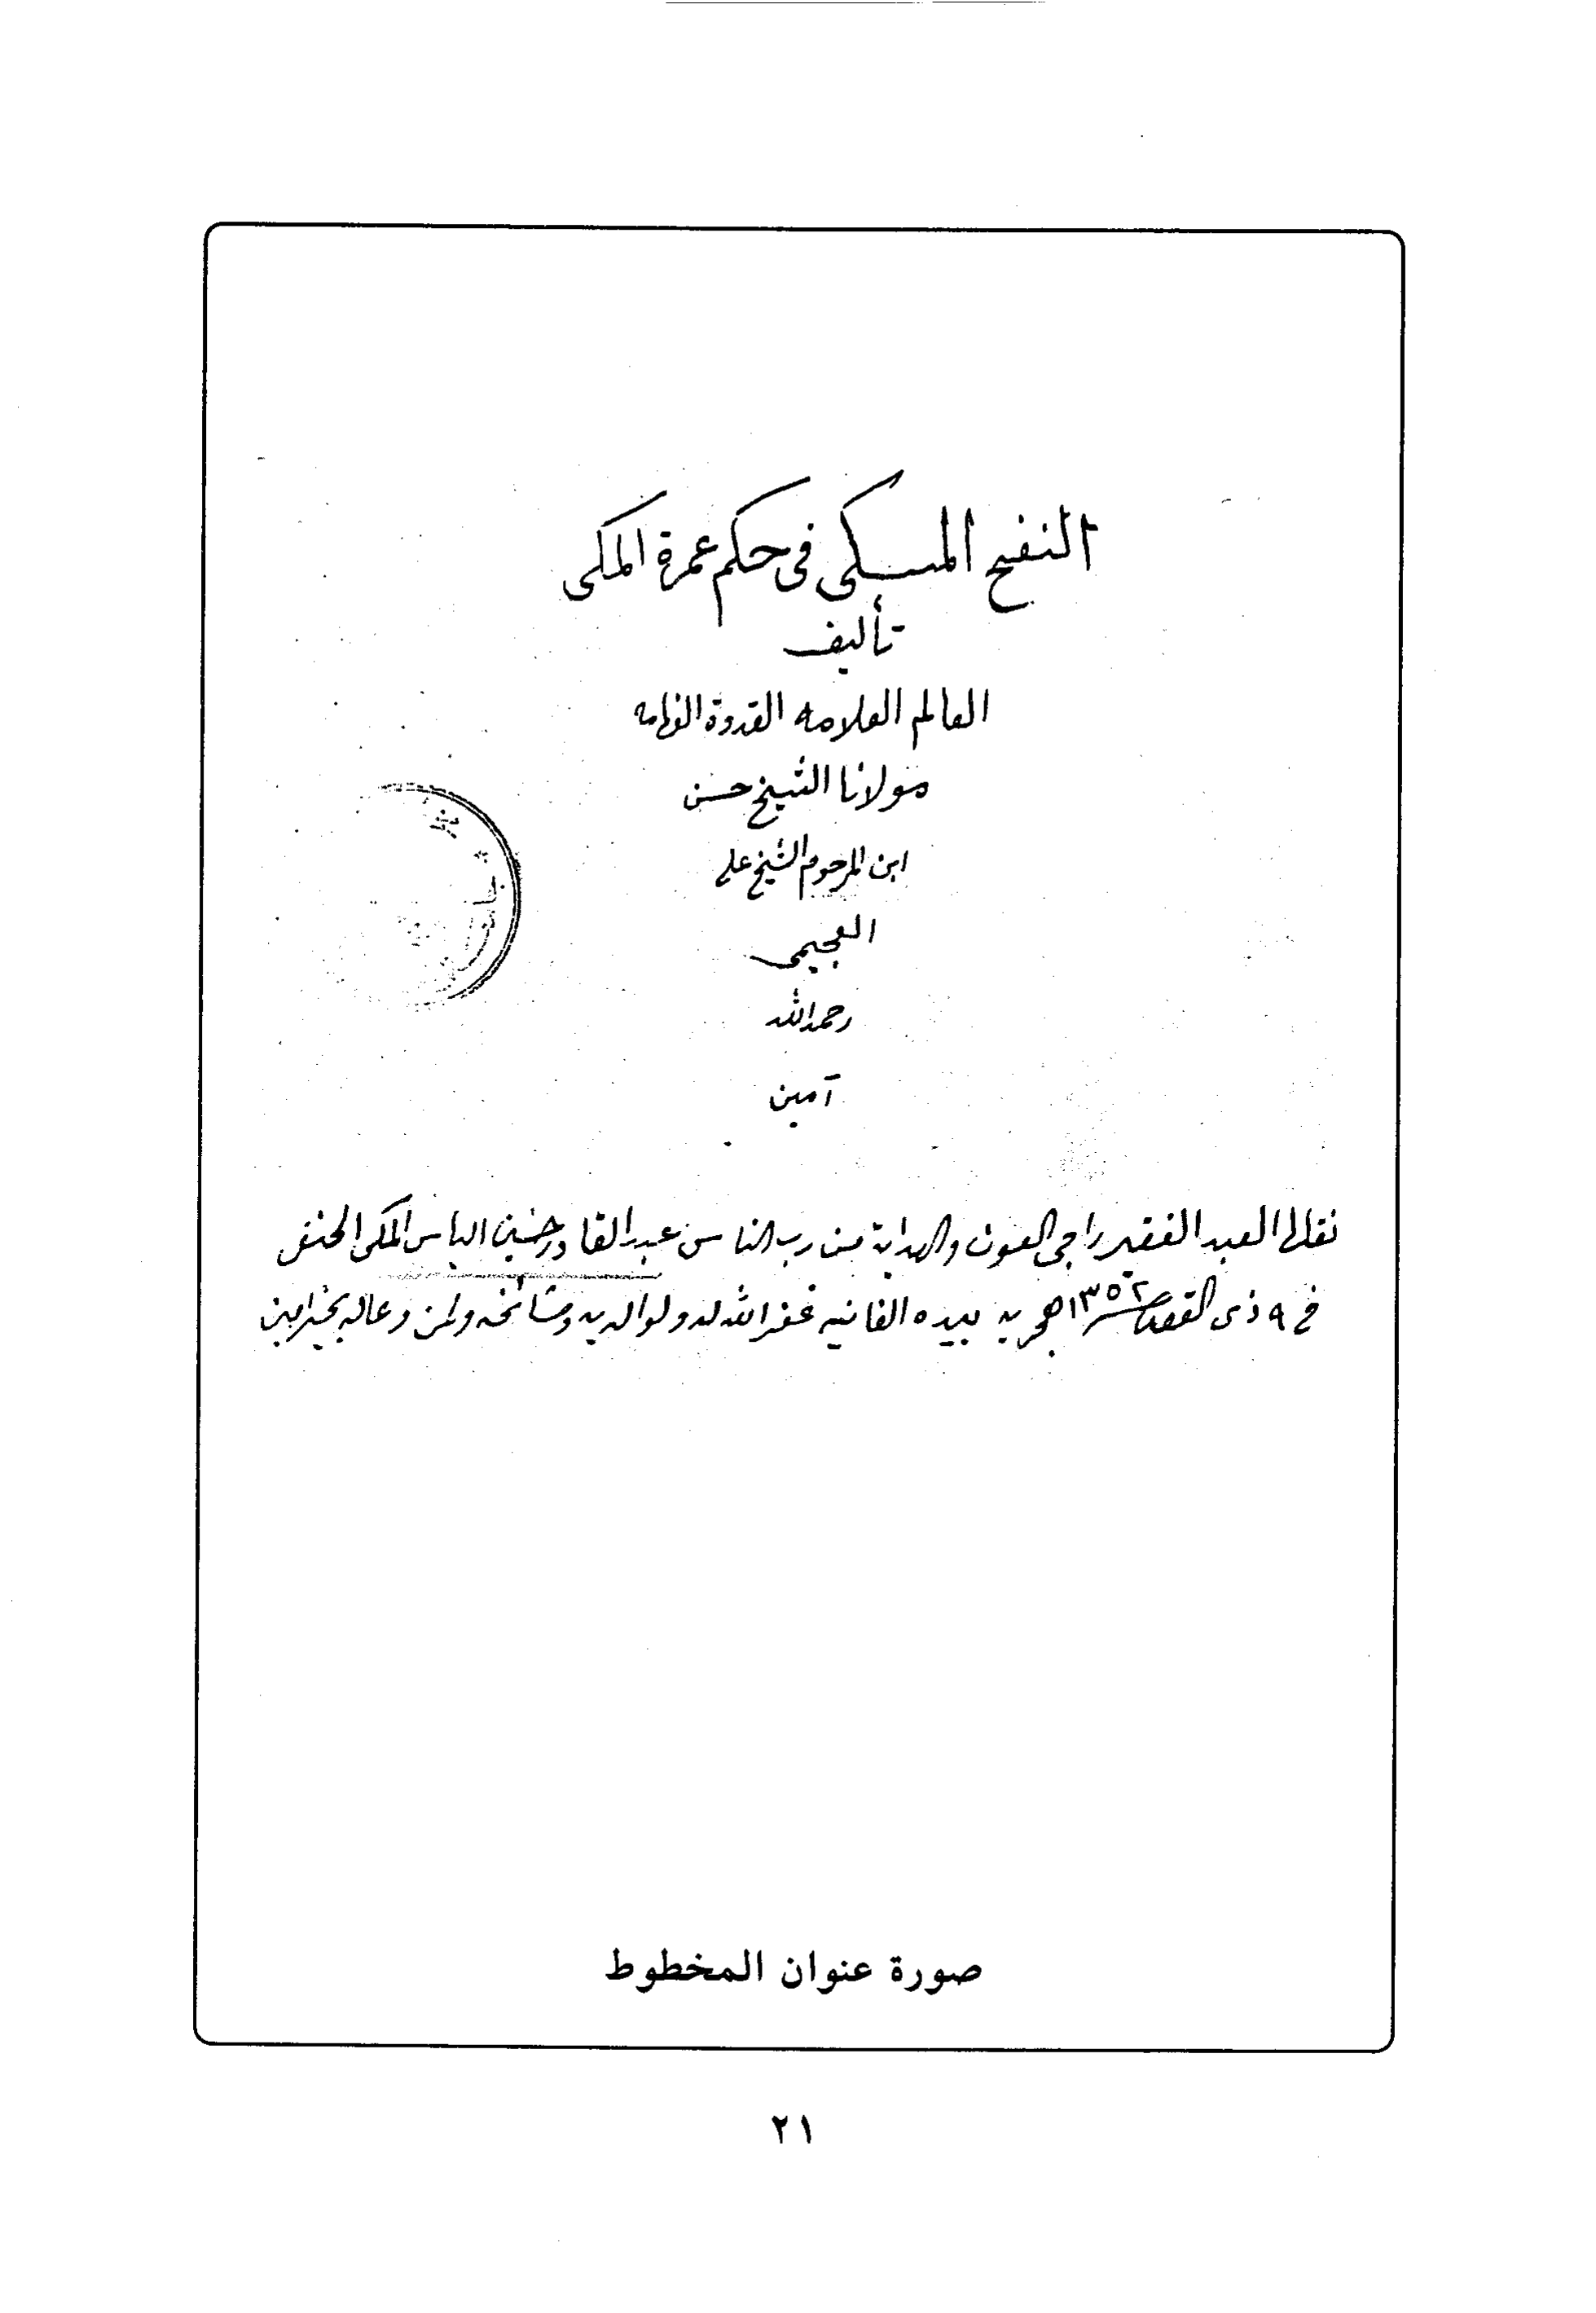 النفح المسكى فى حكم عمرة المكى
تأليف
العالم العلامه القدوة الفهامه
مولانا الشيخ حسن
ابن المرحوم الشيخ على
العجيمى
رحمه الله
آمين
نقلها العبد الفقير راجى الغوث والهداية من رب الناس عبد القادر حسين الياس المكى الحنفى
فى ٩ ذى القعدة سنة ١٣٥٢ هجريه بيده الفانيه غفر الله له ولوالديه ومشائخه ولمن دعاله بخير امين
صورة عنوان المخطوط
٢١